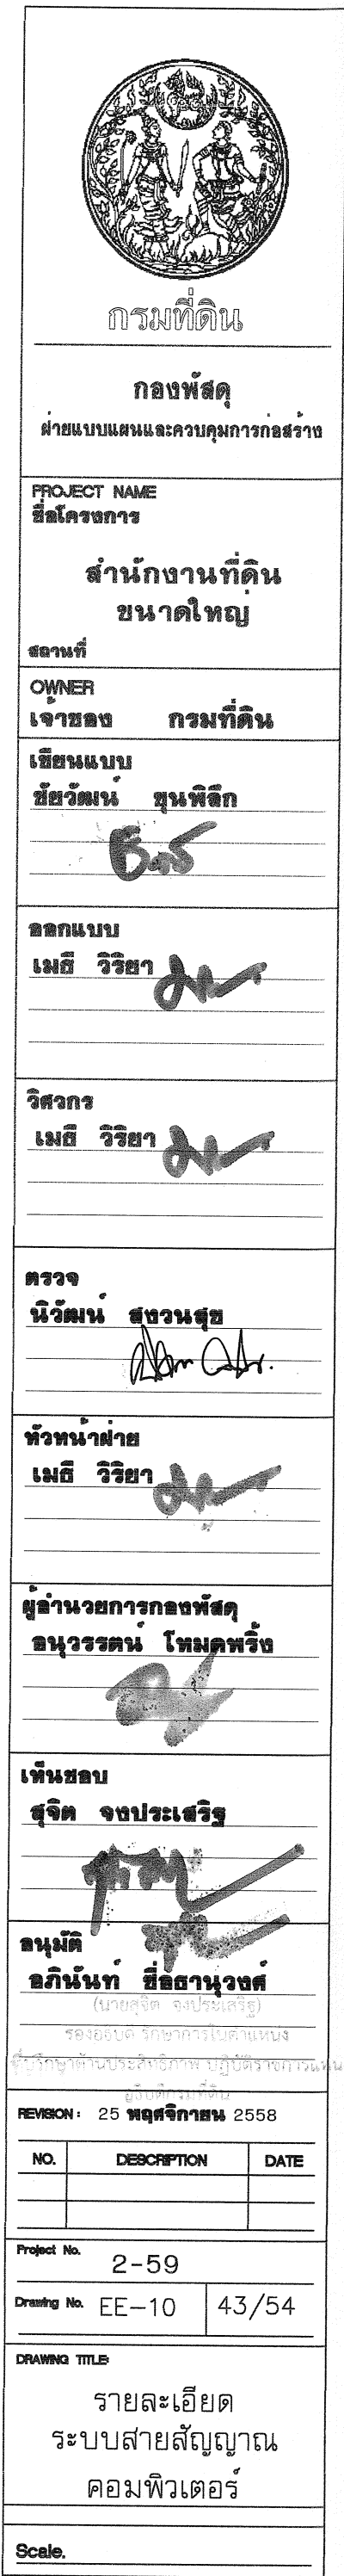 กรมที่ดิน
กองพัสดุ
ฝ่ายแบบแผนและควบคุมการก่อสร้าง
PROJECT NAME
ชื่อโครงการ
สำนักงานที่ดิน
ขนาดใหญ่
สถานที่
OWNER
เจ้าของ กรมที่ดิน
เขียนแบบ
ชัยวัฒน์ ขุนพิลึก
ออกแบบ
เมธี วิริยา
วิศวกร
เมธี วิริยา
ตรวจ
นิวัฒน์ สงวนสุข
หัวหน้าฝ่าย
เมธี วิริยา
ผู้อำนวยการกองพัสดุ
อนุวรรตน์ โหมดพริ้ง
เห็นชอบ
สุจิต จงประเสริฐ
อนุมัติ
อภินันท์ ซื่อธานุวงศ์
(นายสุจิต จงประเสริฐ)
รองอธิบดี รักษาการในตำแหน่ง
ที่ปรึกษาด้านประสิทธิภาพ ปฏิบัติราชการแทน
อธิบดีกรมที่ดิน
REVISION : 25 พฤศจิกายน 2558
NO. DESCRIPTION DATE
Project No. 2-59
Drawing No. EE-10 43/54
DRAWING TITLE:
รายละเอียด
ระบบสายสัญญาณ
คอมพิวเตอร์
Scale.